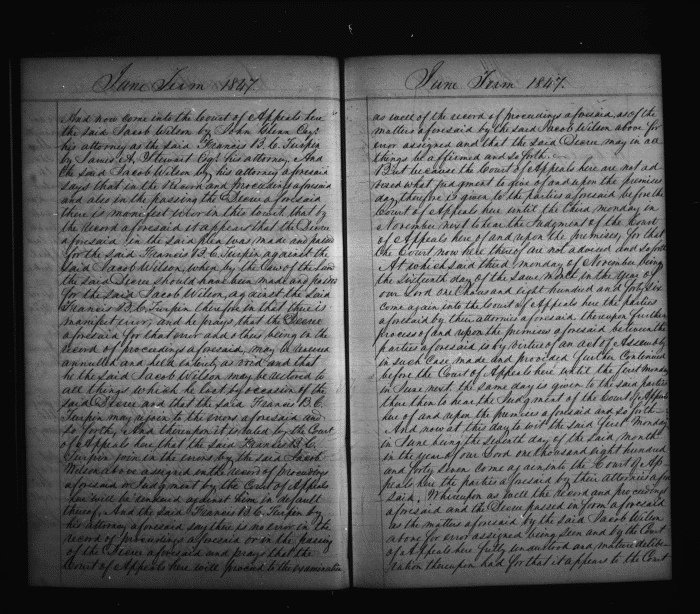 June Term 1847.
And now come into the Court of Appeals here
the said Jacob Wilson by John Glenn Esqr.
his attorney as the said Francis B. C. Turpin
by James A. Stewart Esqr. his attorney. And
the said Jacob Wilson by his attorney aforesaid
says that in the Record and proceedings aforesaid
and also in the passing the Decree aforesaid
there is manifest error in this Court that by
the record aforesaid it appears that the Decree
aforesaid in the said plea was made and passed
for the said Francis B. C. Turpin against the
said Jacob Wilson, when by the Law of the Land
the said Decree should have been made and passed
for the said Jacob Wilson, against the said
Francis B. C. Turpin therefore in that there is
manifest error, and he prays that the Decree
aforesaid for that error and others being in the
record of proceedings aforesaid, may be reversed
annulled and held entirely as void and that
he the said Jacob Wilson may be restored to
all things which he lost by occasion of the
said Decree and that the said Francis B. C.
Turpin may rejoin to the errors aforesaid and
so forth, And thereupon it is ruled by the Court
of Appeals here that the said Francis B. C.
Turpin join in the errors by the said Jacob
Wilson above assigned in the record of proceedings
aforesaid or Judgment by the Court of Appeals
here will be rendered against him in default
thereof, And the said Francis B. C. Turpin by
his attorney aforesaid say there is no error in the
record of proceedings aforesaid or in the passing
of the Decree aforesaid and prays that the
Court of Appeals here will proceed to the examination
June Term 1847.
as well of the record of proceedings aforesaid, as of the
matters aforesaid by the said Jacob Wilson above for
error assigned and that the said Decree may in all
things be affirmed and so forth.
But because the Court of Appeals here are not ad-
vised what judgment to give of and upon the premises
day therefore is given to the parties aforesaid before the
Court of Appeals here until the third monday in
November next to hear the Judgment of the Court
of Appeals here of and upon the premises, for that
the Court now here thereof are not advised and so forth
At which said third monday of November being
the sixteenth day of the same month in the year of
our Lord one thousand eight hundred and forty six
come again into the Court of Appeals here the parties
aforesaid by their attornies aforesaid, thereupon further
process of and upon the premises aforesaid between the
parties aforesaid is by virtue of an act of Assembly
in such case made and provided further continued
before the Court of Appeals here until the first monday
in June next the same day is given to the said parties
there then to hear the Judgment of the Court of Appeals
here of and upon the premises aforesaid and so forth
And now at this day to wit the said first Monday
in June being the seventh day of the said month
in the year of our Lord one thousand eight hundred
and forty seven come again into the Court of Ap-
peals here the parties aforesaid by their attornies afore
said, Whereupon as well the record and proceedings
aforesaid and the Decree passed in form aforesaid
as the matters aforesaid by the said Jacob Wilson
above for error assigned being seen and by the Court
of Appeals here fully understood and mature delibe-
ration thereupon had for that it appears to the Court